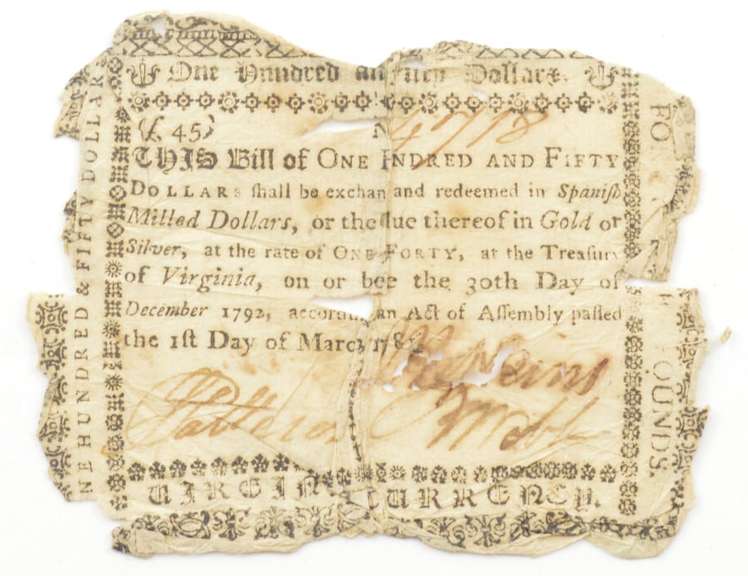 One Hundred an Fifty Dollars.
(£.45)
4718
THIS Bill of ONE HNDRED AND FIFTY
DOLLARS ſhall be exchan and redeemed in Spaniſh
Milled Dollars, or the lue thereof in Gold or
Silver, at the rate of ONE FORTY, at the Treaſury
of Virginia, on or bee the 30th Day of
December 1792, accordin an Act of Aſſembly paſſed
the 1ſt Day of March 178
Hopkins
J Webb
VIRGIN CURRENCY.
NE HUNDRED & FIFTY DOLLAR
FO
OUNDS.